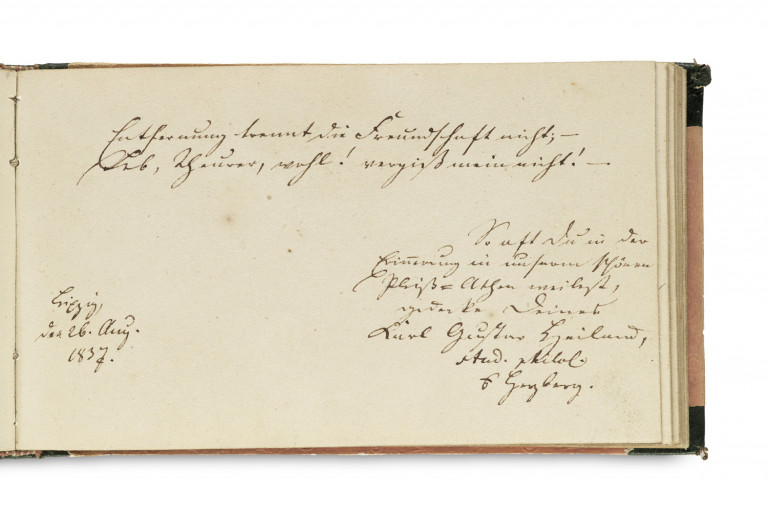 Entfernung trennt die Freundschaft nicht; –
Leb, Theurer, wohl! vergiß mein nicht! –
So oft Du in der
Erinnerung in unserm schönen
Pleiß=Athen weilest,
gedenke Deines
Karl Gustav Heiland,
stud. philol.
Herzberg.
Leipzig,
den 26. Aug.
1837.